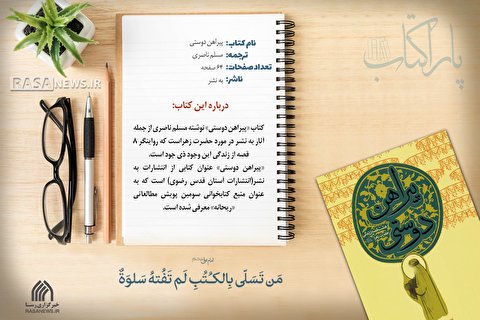 پاراکتاب
RASANEWS.IR
نام کتاب: پیراهن دوستی
ترجمه: مسلم ناصری
تعداد صفحات: ۶۴ صفحه
ناشر: به نشر
درباره این کتاب:
کتاب «پیراهن دوستی» نوشته مسلم ناصری از جمله
آثار به نشر در مورد حضرت زهراست که روایتگر ۸
قصه از زندگی این وجود ذی جود است.
«پیراهن دوستی» عنوان کتابی از انتشارات به
نشر(انتشارات استان قدس رضوی) است که به
عنوان منبع کتابخوانی سومین پویش مطالعاتی
«ریحانه» معرفی شده است.
پیراهن
دوستی
مَن تَسَلّی بِالكُتُبِ لَم تَفُتهُ سَلوَةٌ
خبرگزاری رسا
RASANEWS.IR